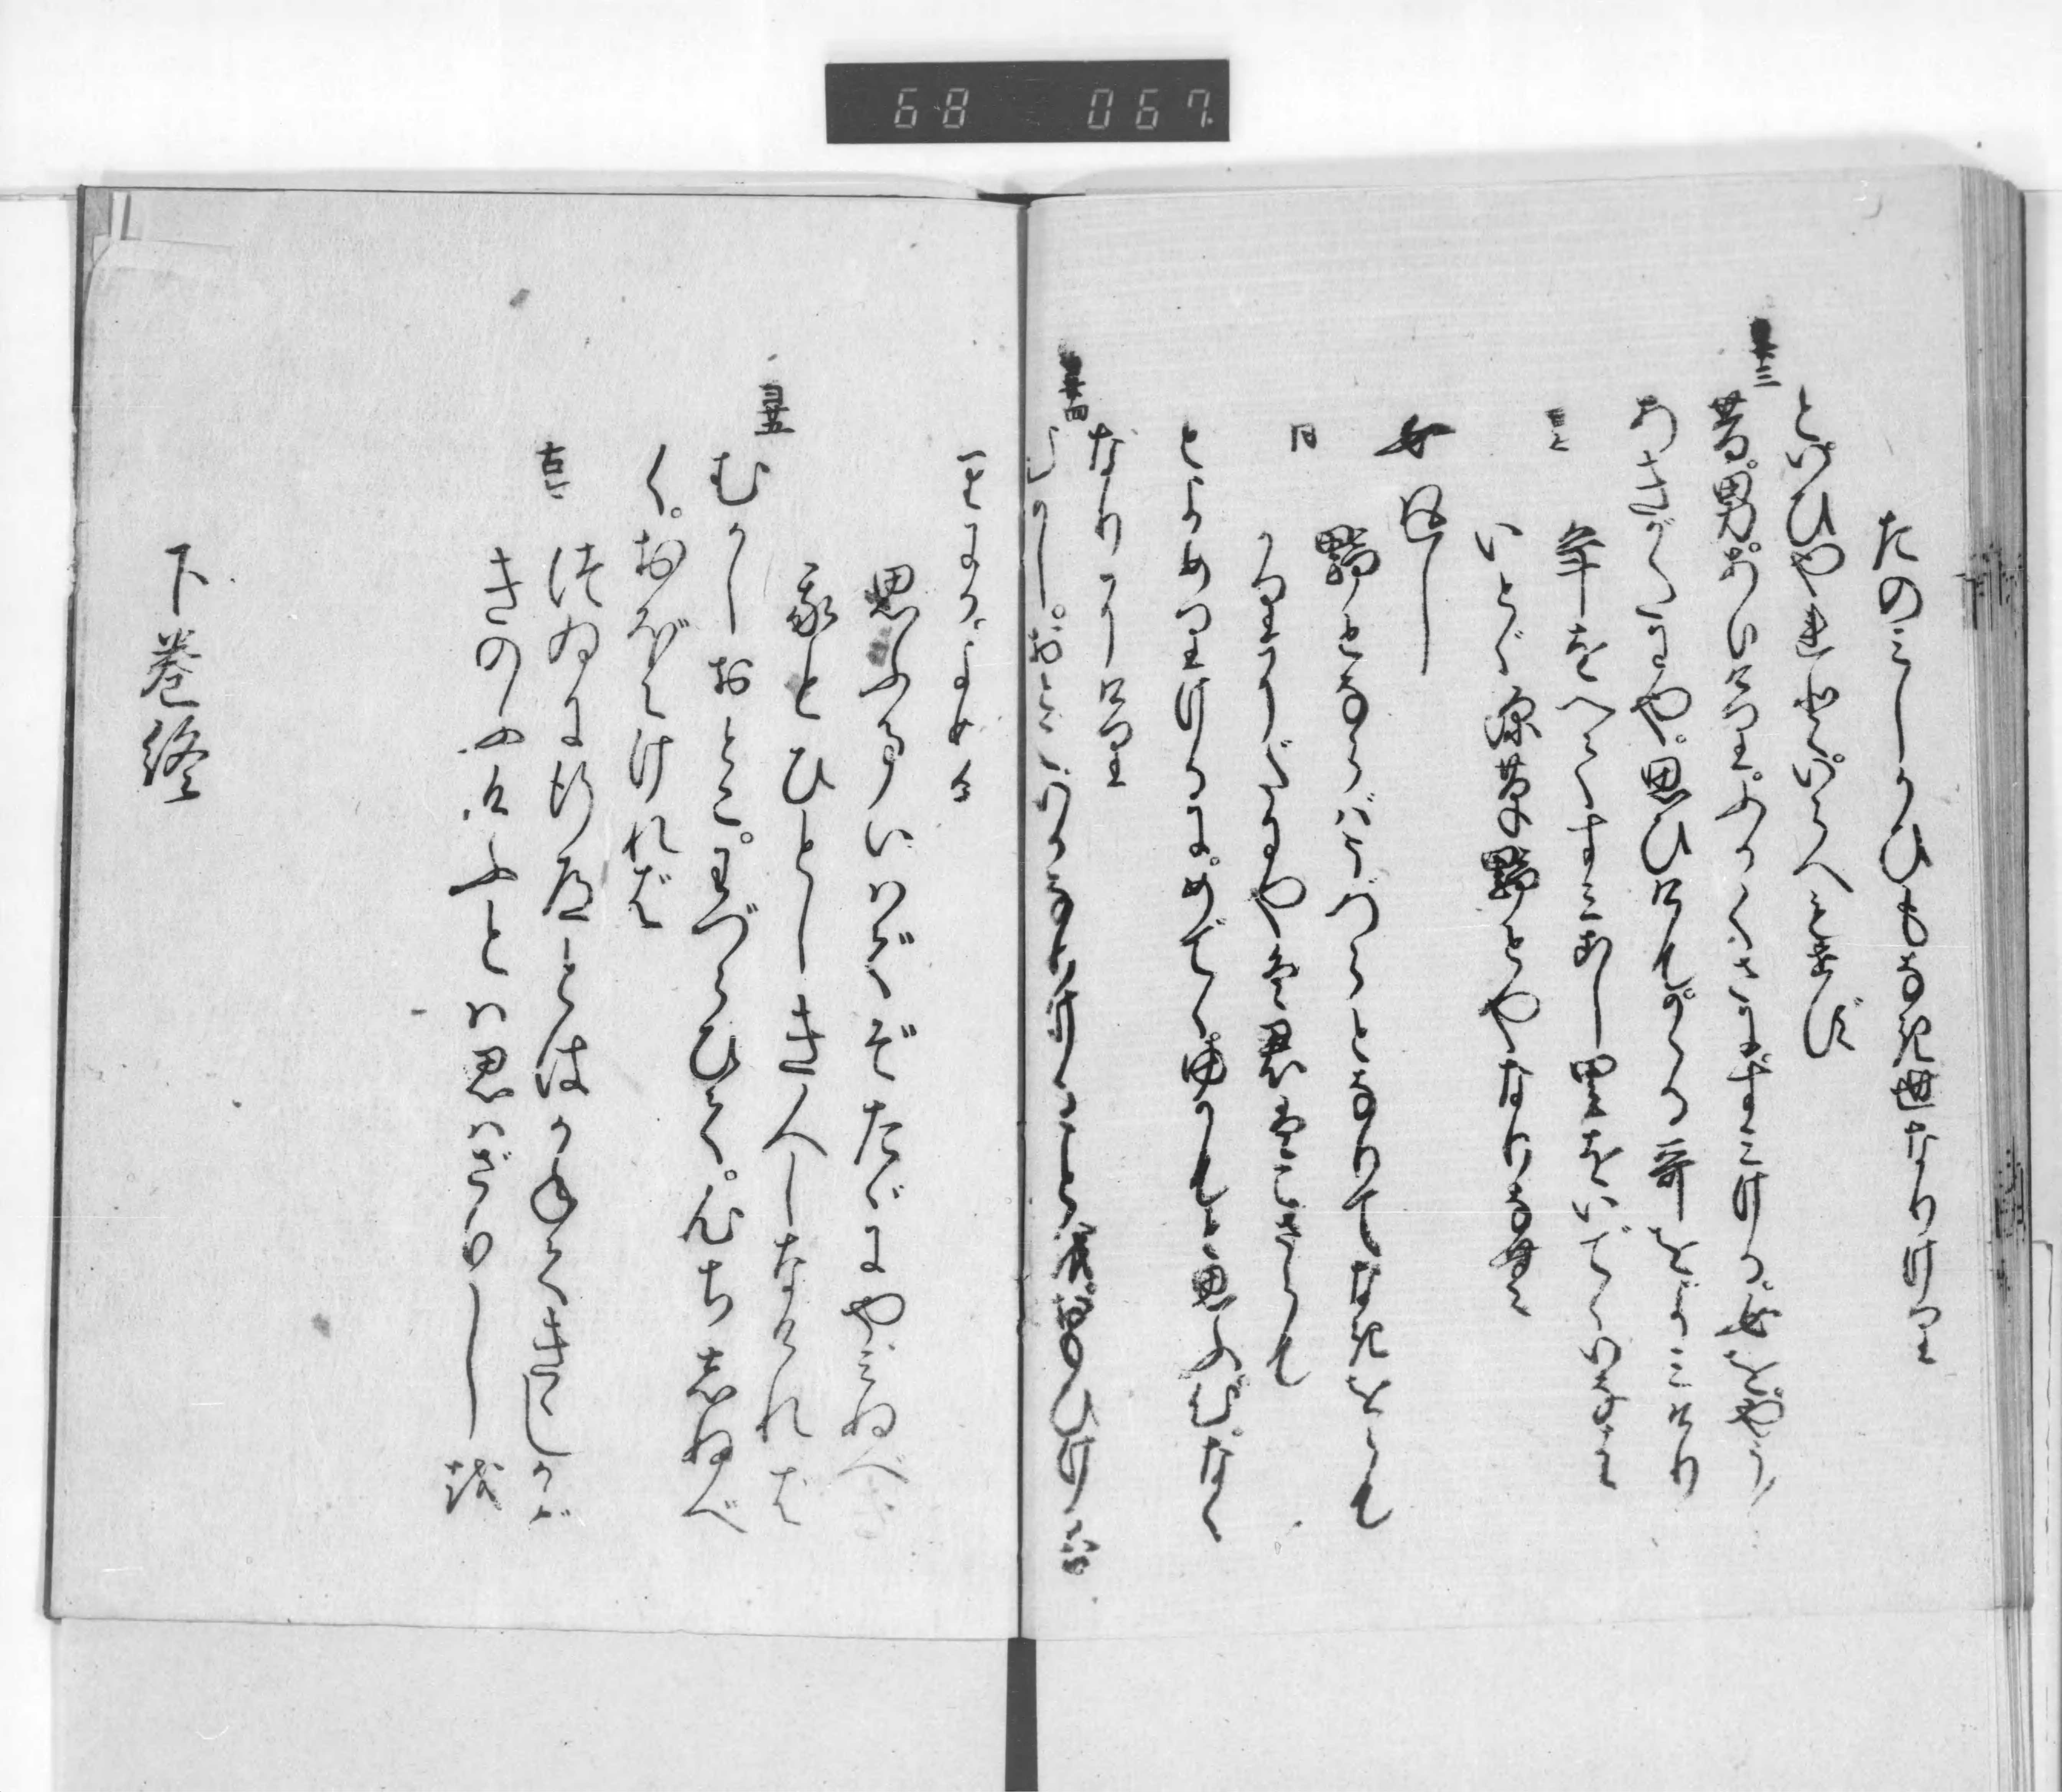 68 067
たのみしかひもなき世なりけり
といひやれど。いらへもせず
百廿三
昔。男ありけり。ふかくさにすみける女を。やう〳〵
あきがたにや。思ひけん。かゝる哥をよみけり
年をへてすみこし里をいでゝいなば
いとゞ深草野とやなりなん
女返し
野とならばうづらとなりてなきをらん
かりにだにやは君はこざらん
とよめりけるに。めでゝ。ゆかんと思ふ心。なく
なりにけり
百廿四
むかし。おとこ。いかなりけることを。思ひけるおりにか
よめる
思ふ事いはでぞたゞにやみぬべき
我とひとしき人しなければ
百廿五
むかしおとこ。わづらひて。心ち志ぬべ
く。おぼえければ
古今
つゐに行道とはかねてきゝしかど
きのふけふとは思はざりしを
下巻終